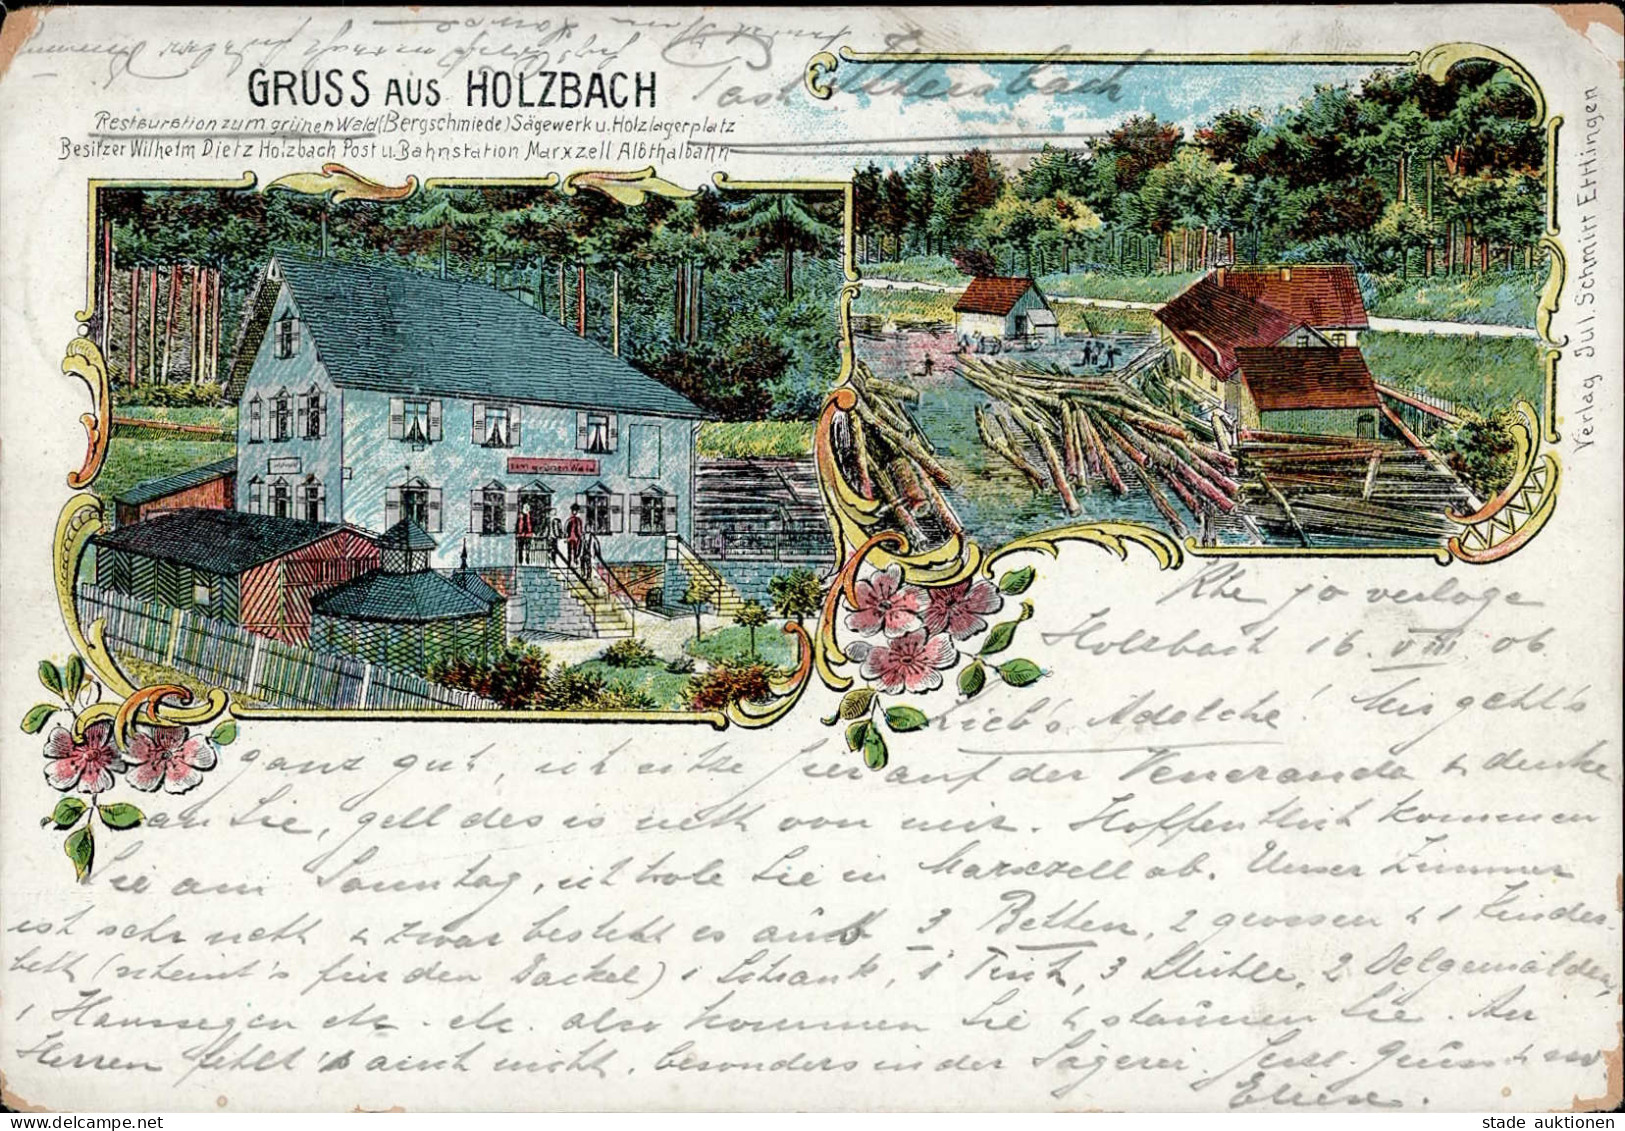 GRUSS AUS HOLZBACH
Restauration zum grünen Wald (Bergschmiede) Sägewerk u. Holzlagerplatz
Besitzer Wilhelm Dietz Holzbach Post u. Bahnstation Marxzell Albthalbahn
Post Ittersbach
zum grünen Wald
Verlag Jul. Schmitt Ettlingen
Holzbach 16. VIII 06
Lieb's Adelche! Mir geht's
ganz gut, ich sitze hier auf der Veneranda & denke
an Sie, gell des is nett von mir. Hoffentlich kommen
Sie am Sonntag, ich hole Sie in Marxzell ab. Unser Zimmer
ist sehr nett & zwar besteht es aus 3 Betten, 2 grossen & 1 Kinder-
bett (scheint's für den Dackel) 1 Schrank, 1 Tisch, 3 Stühle, 2 Oelgemälden,
1 Haussegen etc. etc. also kommen Sie & staunen Sie. An
Herren fehlt's auch nicht, besonders in der Sägerei.
stade auktionen